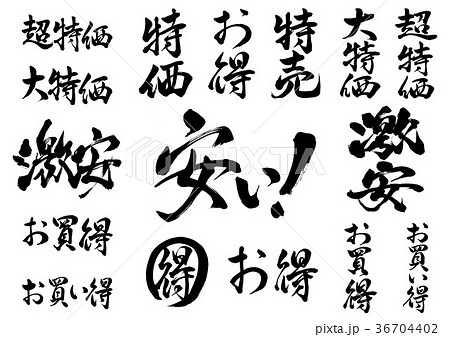 超特価
大特価
激安
お買得
お買い得
特価
お得
特売
安い!
得
お得
大特価
超特価
激安
お買得
お買い得
pixta.jp - 36704402